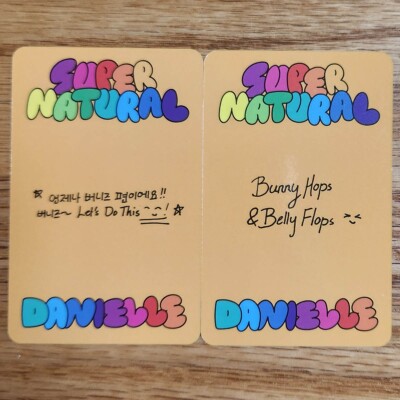 SUPER
NATURAL
☆ 언제나 버니즈 편이에요!!
버니즈~ Let's Do This ^‿^! ☆
DANIELLE
SUPER
NATURAL
Bunny Hops
& Belly Flops >‿<
DANIELLE